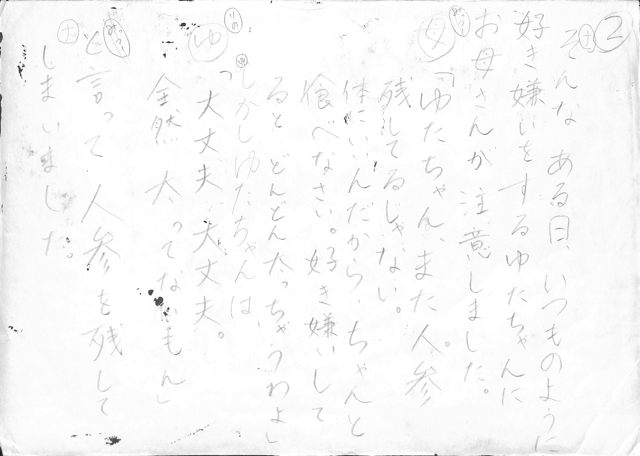 ②
そんなある日、いつものように
好き嫌いをするゆたちゃんに
お母さんが注意しました。
母「ゆたちゃん、また人参
残してるじゃない。
体にいいんだから、ちゃんと
食べなさい。好き嫌いして
るとどんどん太っちゃうわよ」
しかしゆたちゃんは、
ゆ「大丈夫、大丈夫。
全然太ってないもん」
と言って人参を残して
しまいました。